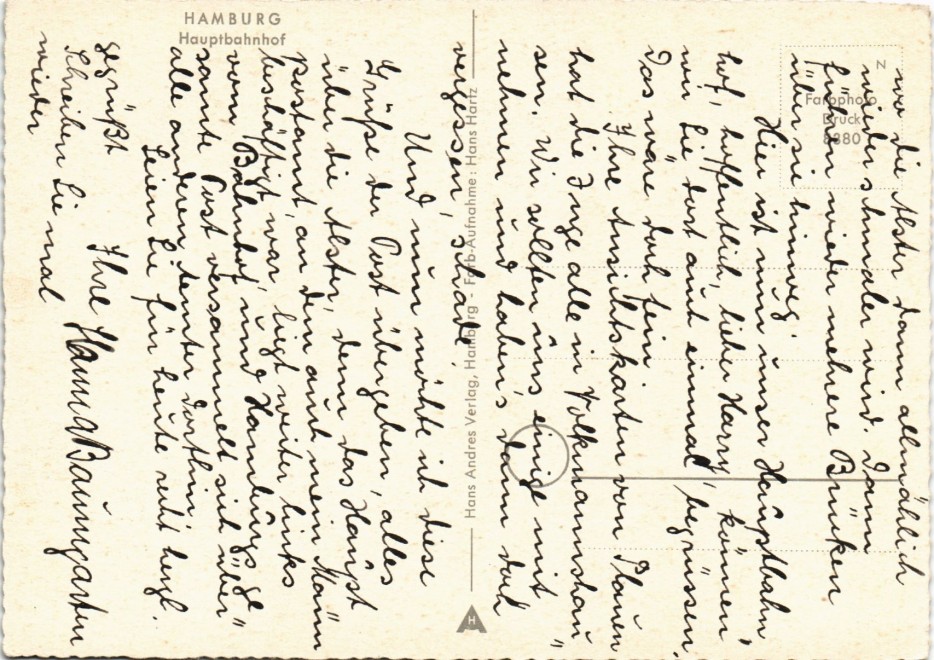 HAMBURG
Hauptbahnhof
Farbphoto
Druck
8380
Hans Andres Verlag, Hamburg - Farb-Aufnahme: Hans Hartz
H
N
wo die Alster dann allmählich
wieder schmaler wird. Dann
führen wieder mehrere Brücken
über sie hinweg.
Hier ist nun unser Hauptbahn
hof, hoffentlich, lieber Harry, können
wir Sie dort auch einmal begrüssen.
Das wäre doch fein.
Ihre Ansichtskarten von Plauen
hat die Inge alle in Volkmannshau
sen. Wir sollten uns einige mit
nehmen und haben's dann doch
vergessen, schade.
Und nun möchte ich diese
Grüße der Post übergeben, alles
über die Alster, denn das Haupt
postamt, an dem auch mein Mann
beschäftigt war, liegt weiter links
vom Bahnhof, und Hamburgs ge
samte Post versammelt sich über
alle anderen Ämter dorthin.
Seien Sie für heute recht herzl.
gegrüßt
Ihre Hanna Baumgarten
Schreiben Sie mal
wieder